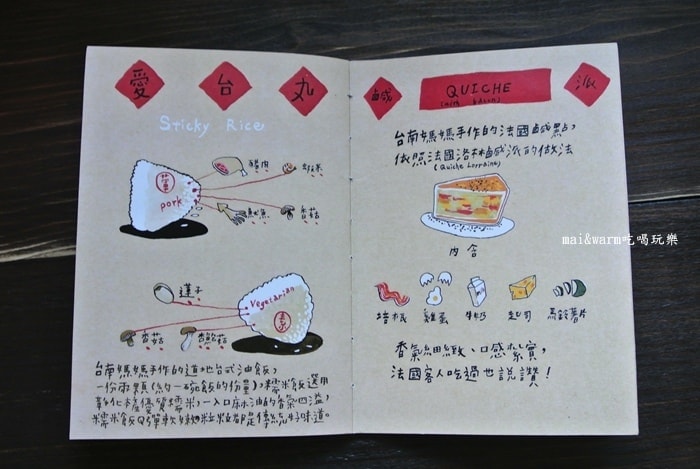 愛台丸
Sticky Rice
葷
pork
豬肉
蝦米
魷魚
香菇
蓮子
香菇
杏鮑菇
Vegetarian
素
台南媽媽手作的道地台式油飯,
一份兩顆(約一碗飯的份量),糯米飯選用
彰化樁優質糯米,一入口麻油的香氣四溢,
糯米飯Q彈軟嫩,粒粒都是傳統好味道。
鹹 QUICHE 派
(with bacon)
台南媽媽手作的法國鹹點,
依照法國洛林鹹派的做法
(Quiche Lorraine)
內含
培根 雞蛋 牛奶 起司 馬鈴薯片
香氣細緻、口感紮實,
法國客人吃過也說讚!
mai&warm吃喝玩樂